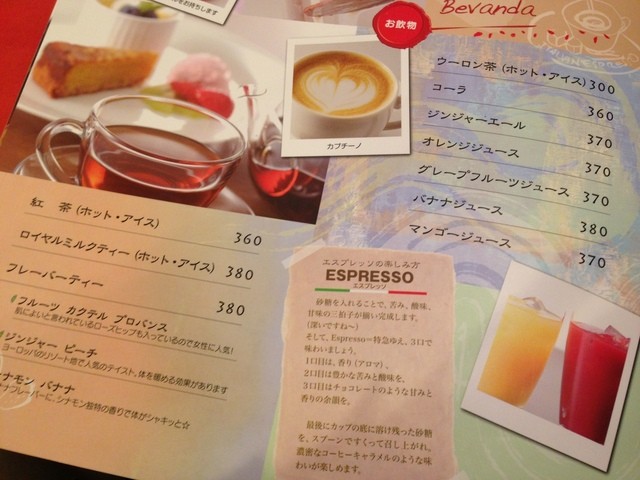 お待ちします
お飲物
Bevanda
ウーロン茶 (ホット・アイス) 300
コーラ 360
ジンジャーエール 370
オレンジジュース 370
グレープフルーツジュース 370
バナナジュース 380
マンゴージュース 370
カプチーノ
紅 茶 (ホット・アイス) 360
ロイヤルミルクティー (ホット・アイス) 380
フレーバーティー 380
フルーツ カクテル プロバンス
肌によいと言われているローズヒップも入っているので女性に人気!
ジンジャー ピーチ
ヨーロッパのリゾート地で人気のテイスト、体を暖める効果があります
ナモン バナナ
ナフレーバーに、シナモン独特の香りで体がシャキッと☆
エスプレッソの楽しみ方
ESPRESSO
エスプレッソ
砂糖を入れることで、苦み、酸味、
甘味の三拍子が揃い完成します。
(深いですね～)
そして、Espresso＝特急ゆえ、3口で
味わいましょう。
1口目は、香り(アロマ)、
2口目は豊かな苦みと酸味を、
3口目はチョコレートのような甘みと
香りの余韻を。
最後にカップの底に溶け残った砂糖
を、スプーンですくって召し上がれ。
濃密なコーヒーキャラメルのような味
わいが楽しめます。